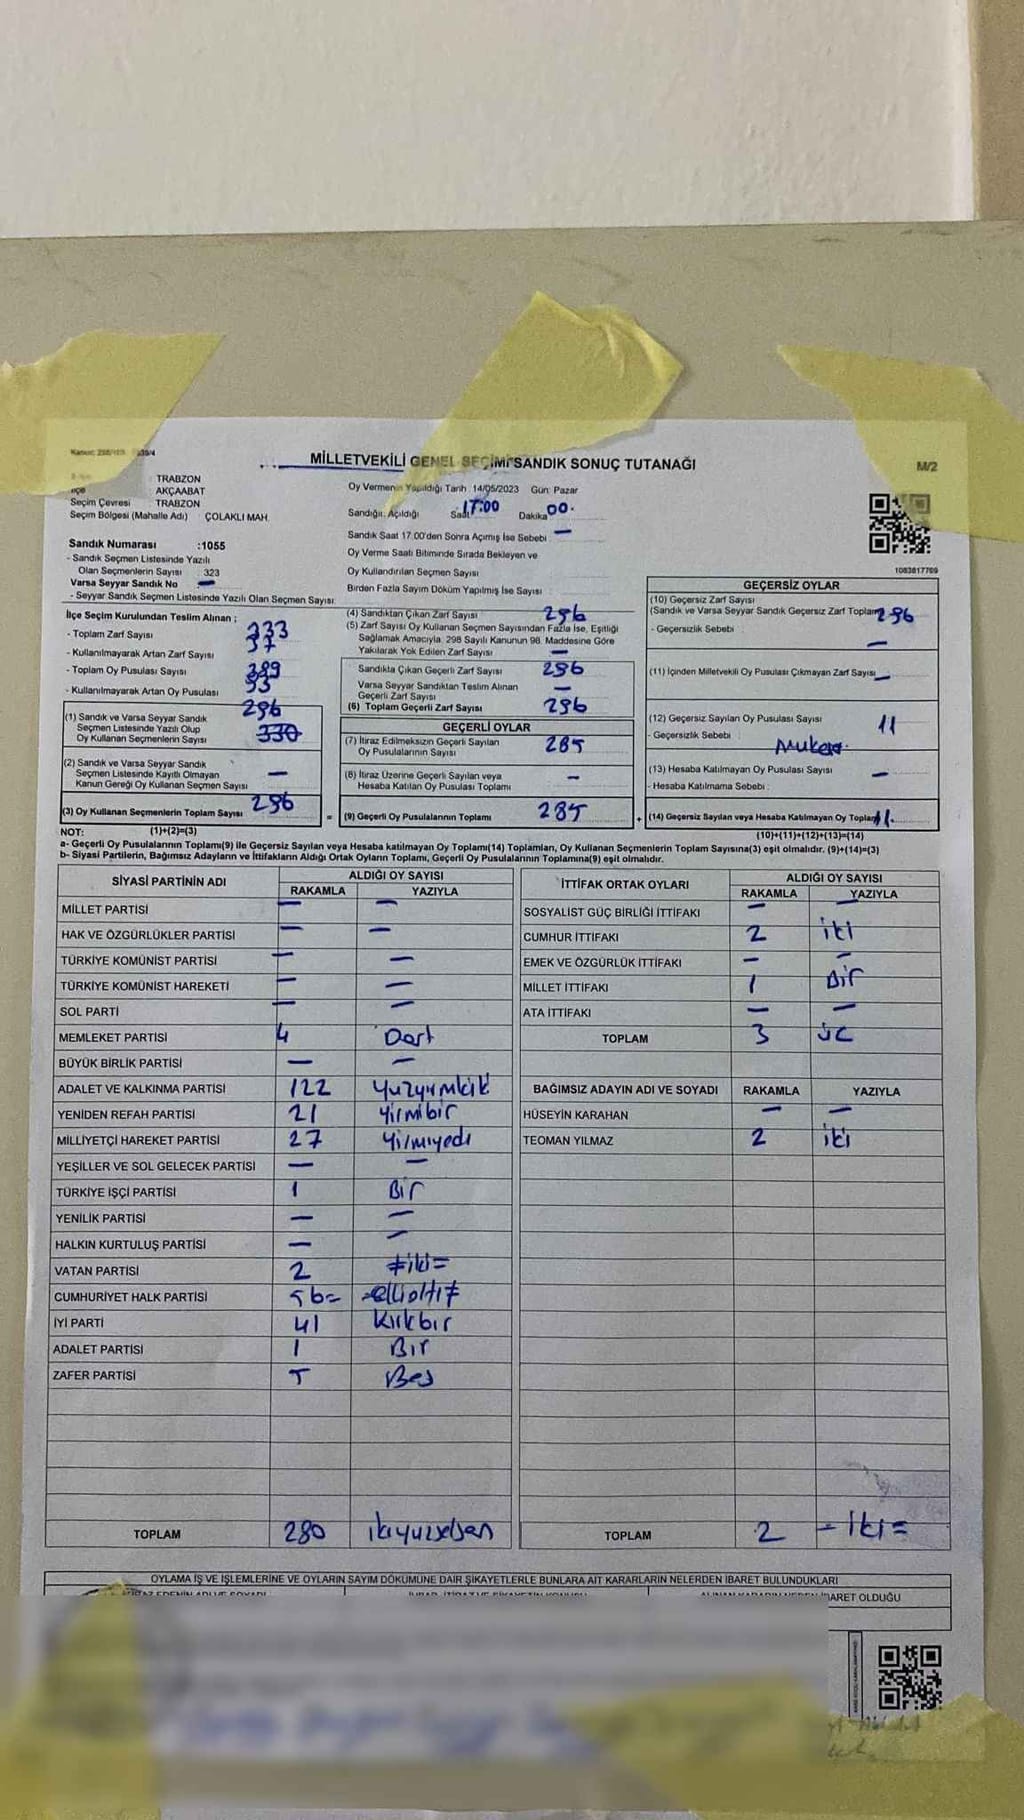 MİLLETVEKİLİ GENEL SEÇİMİ SANDIK SONUÇ TUTANAĞI
M/2
TRABZON
İlçe AKÇAABAT
Seçim Çevresi TRABZON
Seçim Bölgesi (Mahalle Adı) ÇOLAKLI MAH.
Oy Vermenin Yapıldığı Tarih 14/05/2023 Gün: Pazar
Sandığın Açıldığı Saat 17:00 Dakika 00.
Sandık Saat 17.00'den Sonra Açımış İse Sebebi —
Oy Verme Saati Bitiminde Sırada Bekleyen ve
Oy Kullandırılan Seçmen Sayısı
Birden Fazla Sayım Döküm Yapılmış İse Sayısı
Sandık Numarası :1055
- Sandık Seçmen Listesinde Yazılı
Olan Seçmenlerin Sayısı 323
Varsa Seyyar Sandık No —
- Seyyar Sandık Seçmen Listesinde Yazılı Olan Seçmen Sayısı:
1083817709
İlçe Seçim Kurulundan Teslim Alınan ;
- Toplam Zarf Sayısı 333
- Kullanılmayarak Artan Zarf Sayısı 37
- Toplam Oy Pusulası Sayısı
- Kullanılmayarak Artan Oy Pusulası
(1) Sandık ve Varsa Seyyar Sandık 296
Seçmen Listesinde Yazılı Olup 330
Oy Kullanan Seçmenlerin Sayısı
(2) Sandık ve Varsa Seyyar Sandık
Seçmen Listesinde Kayıtlı Olmayan —
Kanun Gereği Oy Kullanan Seçmen Sayısı
(3) Oy Kullanan Seçmenlerin Toplam Sayısı 296
(4) Sandıktan Çıkan Zarf Sayısı 296
(5) Zarf Sayısı Oy Kullanan Seçmen Sayısından Fazla İse, Eşitliği
Sağlamak Amacıyla, 298 Sayılı Kanunun 98. Maddesine Göre
Yakılarak Yok Edilen Zarf Sayısı —
Sandıkta Çıkan Geçerli Zarf Sayısı 296
Varsa Seyyar Sandıktan Teslim Alınan
Geçerli Zarf Sayısı —
(6) Toplam Geçerli Zarf Sayısı 296
GEÇERLİ OYLAR
(7) İtiraz Edilmeksizin Geçerli Sayılan
Oy Pusulalarının Sayısı 285
(8) İtiraz Üzerine Geçerli Sayılan veya
Hesaba Katılan Oy Pusulası Toplamı —
= (9) Geçerli Oy Pusulalarının Toplamı 285
GEÇERSİZ OYLAR
(10) Geçersiz Zarf Sayısı
(Sandık ve Varsa Seyyar Sandık Geçersiz Zarf Toplamı) 296
- Geçersizlik Sebebi —
(11) İçinden Milletvekili Oy Pusulası Çıkmayan Zarf Sayısı —
(12) Geçersiz Sayılan Oy Pusulası Sayısı 11
- Geçersizlik Sebebi
(13) Hesaba Katılmayan Oy Pusulası Sayısı —
- Hesaba Katılmama Sebebi :
+ (14) Geçersiz Sayılan veya Hesaba Katılmayan Oy Toplamı 11.
NOT: (1)+(2)=(3) (10)+(11)+(12)+(13)=(14)
a- Geçerli Oy Pusulalarının Toplamı(9) ile Geçersiz Sayılan veya Hesaba katılmayan Oy Toplamı(14) Toplamları, Oy Kullanan Seçmenlerin Toplam Sayısına(3) eşit olmalıdır. (9)+(14)=(3)
b- Siyasi Partilerin, Bağımsız Adayların ve İttifakların Aldığı Ortak Oyların Toplamı, Geçerli Oy Pusulalarının Toplamına(9) eşit olmalıdır.
SİYASİ PARTİNİN ADI ALDIĞI OY SAYISI
RAKAMLA YAZIYLA
MİLLET PARTİSİ — —
HAK VE ÖZGÜRLÜKLER PARTİSİ — —
TÜRKİYE KOMÜNİST PARTİSİ — —
TÜRKİYE KOMÜNİST HAREKETİ — —
SOL PARTİ — —
MEMLEKET PARTİSİ 4 Dört
BÜYÜK BİRLİK PARTİSİ — —
ADALET VE KALKINMA PARTİSİ 122
YENİDEN REFAH PARTİSİ 21 Yirmibir
MİLLİYETÇİ HAREKET PARTİSİ 27 Yirmiyedi
YEŞİLLER VE SOL GELECEK PARTİSİ — —
TÜRKİYE İŞÇİ PARTİSİ 1 Bir
YENİLİK PARTİSİ — —
HALKIN KURTULUŞ PARTİSİ — —
VATAN PARTİSİ 2 =iki=
CUMHURİYET HALK PARTİSİ 56= =ellialtı=
İYİ PARTİ 41 Kırkbir
ADALET PARTİSİ 1 Bir
ZAFER PARTİSİ 5 Beş
TOPLAM 280 ikiyüzseksen
İTTİFAK ORTAK OYLARI ALDIĞI OY SAYISI
RAKAMLA YAZIYLA
SOSYALİST GÜÇ BİRLİĞİ İTTİFAKI — —
CUMHUR İTTİFAKI 2 iki
EMEK VE ÖZGÜRLÜK İTTİFAKI — —
MİLLET İTTİFAKI 1 Bir
ATA İTTİFAKI — —
TOPLAM 3 üç
BAĞIMSIZ ADAYIN ADI VE SOYADI RAKAMLA YAZIYLA
HÜSEYİN KARAHAN — —
TEOMAN YILMAZ 2 iki
TOPLAM 2 - iki =
OYLAMA İŞ VE İŞLEMLERİNE VE OYLARIN SAYIM DÖKÜMÜNE DAİR ŞİKAYETLERLE BUNLARA AİT KARARLARIN NELERDEN İBARET BULUNDUKLARI
İBARET OLDUĞU